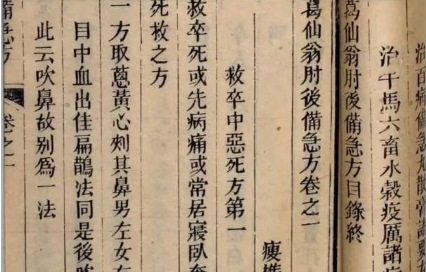 治百病備急丸散膏諸要方
治牛馬六畜水穀疫厲諸病
葛仙翁肘後備急方目錄終
葛仙翁肘後備急方卷之一
救卒中惡死方第一
救卒死或先病痛或常居寢臥奄
死救之方
一方取葱黃心刾其鼻男左女右
目中血出佳扁鵲法同是後
此云吹鼻故别爲一法
備急方 卷之一